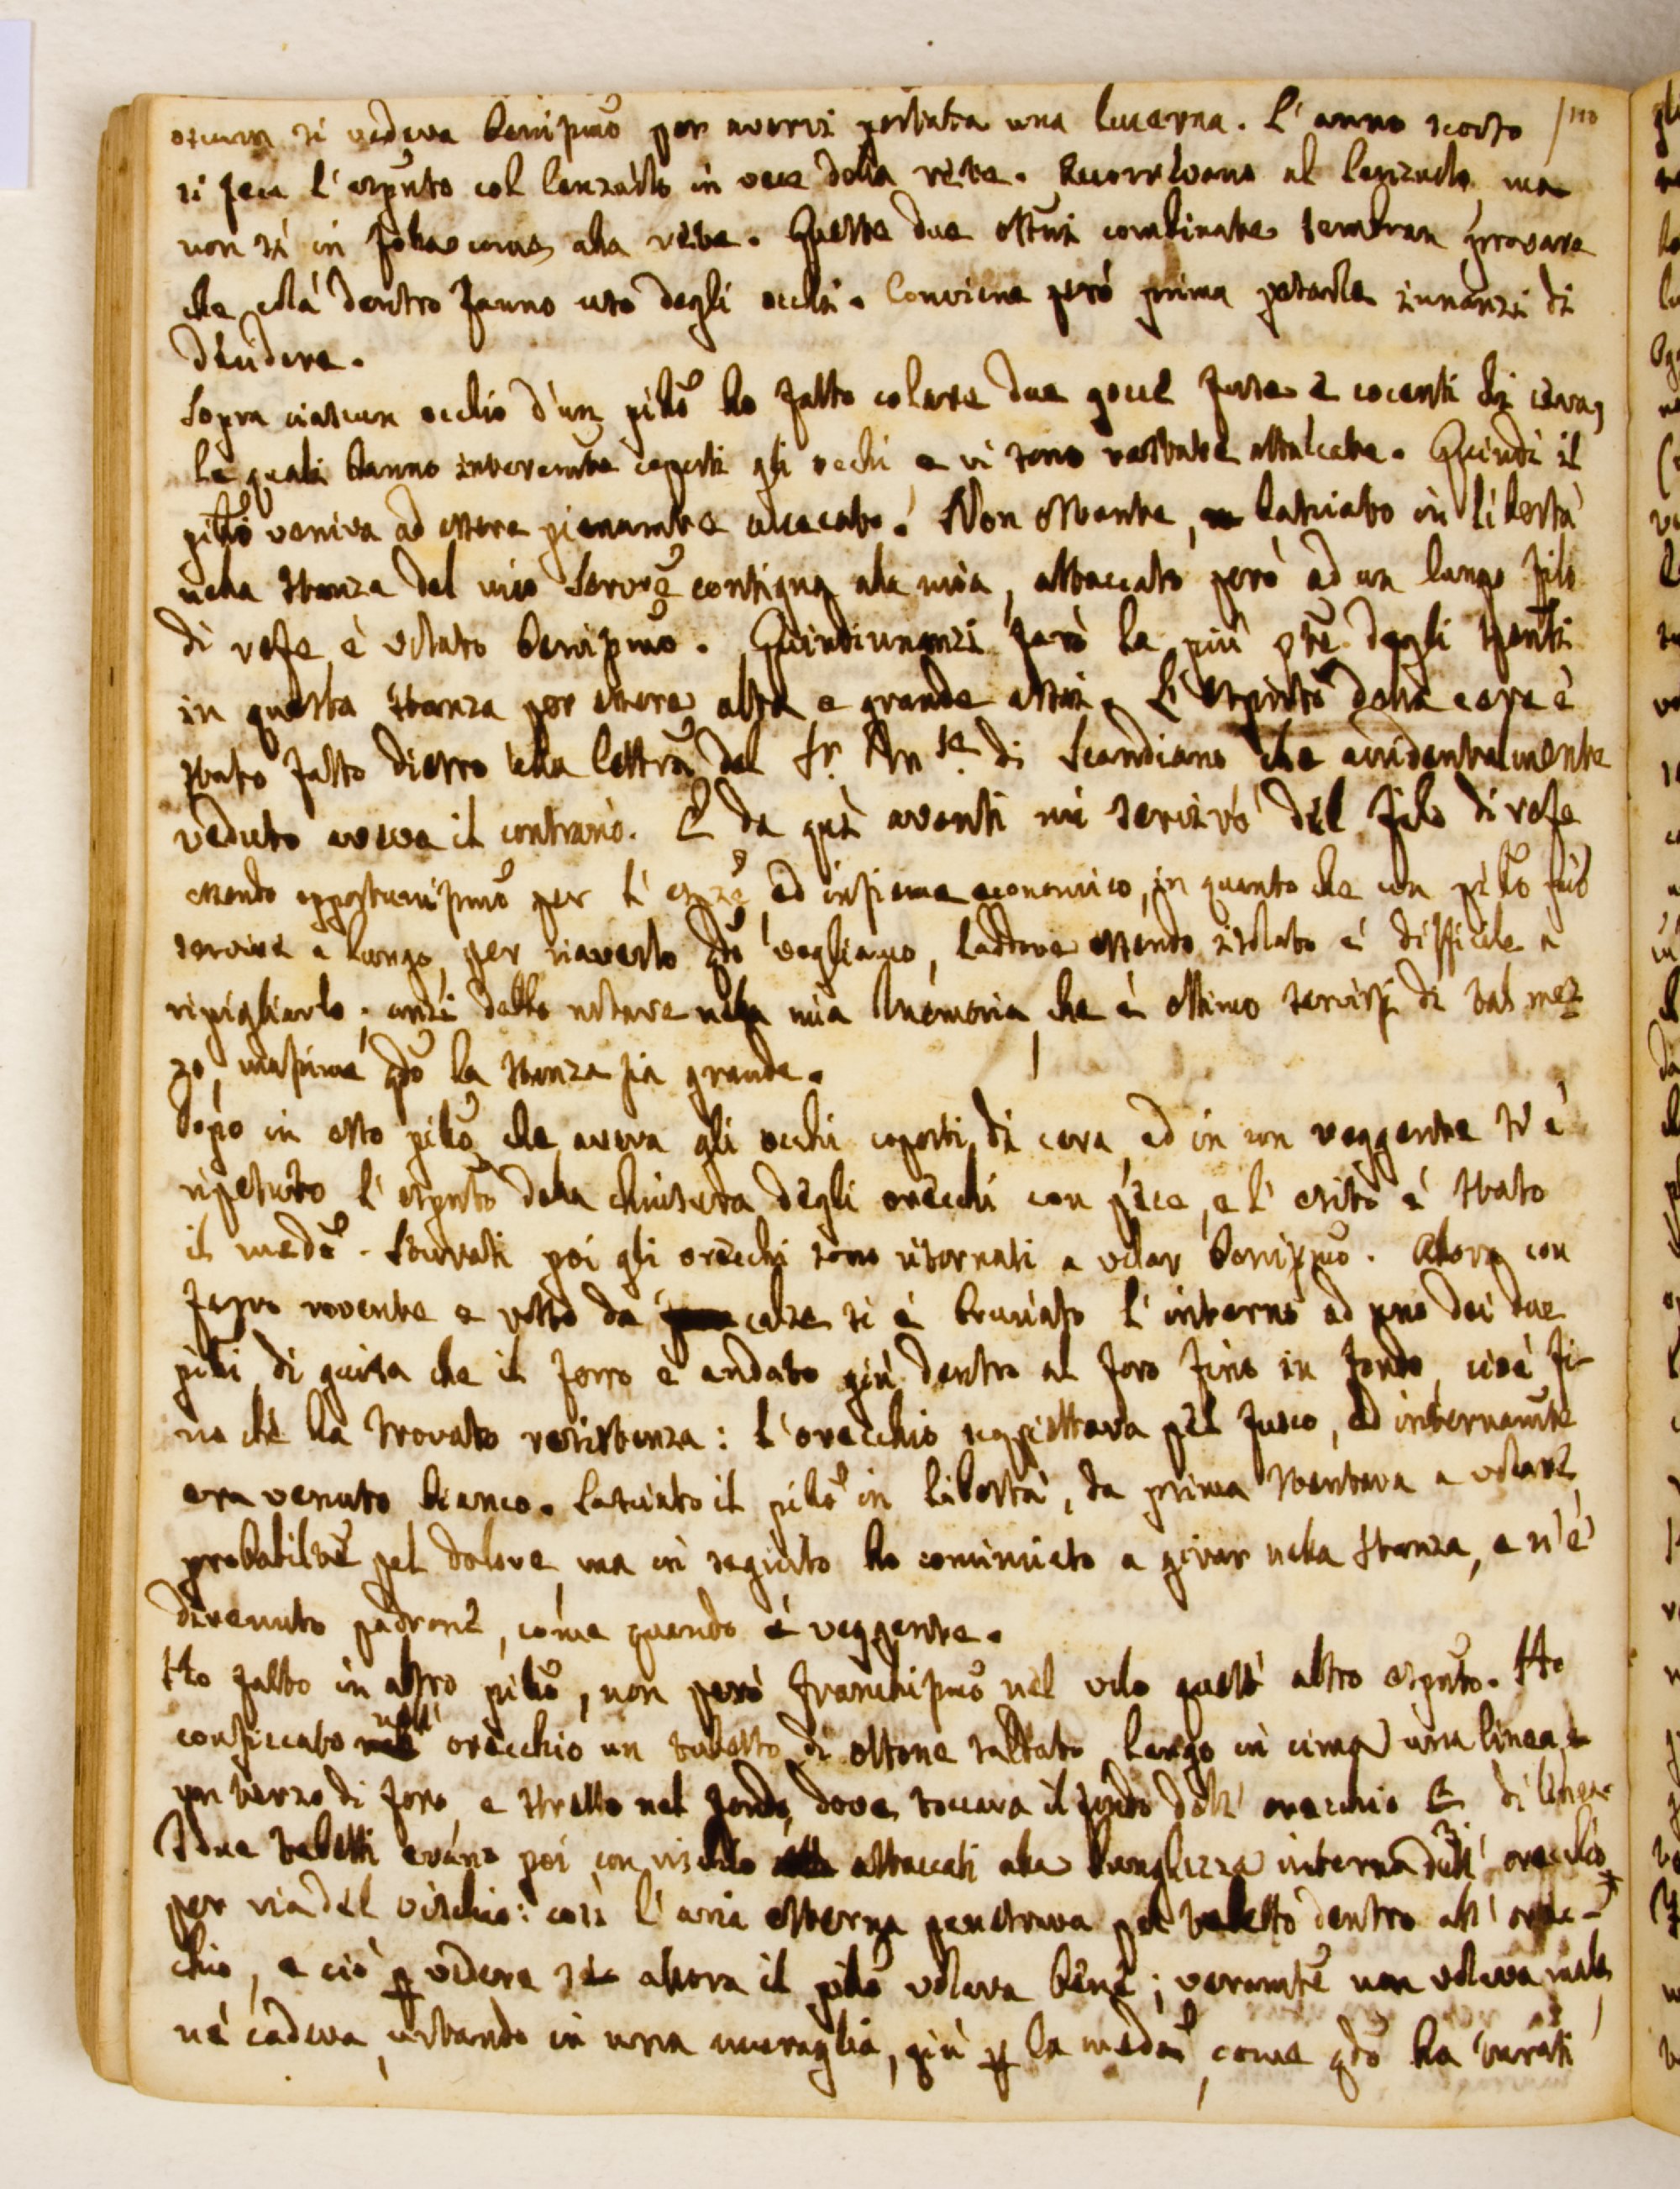 oscura si vedeva benissimo per avervi portata una lucerna. L' anno scorso /110
si fece l' espmto col lenzuolo in vece della rete. Accorrevano al lenzuolo, ma
non sì in folla come alla rete. Queste due ossni combinate sembran provare
che colà dentro fanno uso degli occhi. Conviene però prima pesarle innanzi di
decidere.
Sopra ciascun occhio d'un pillo ho fatto colare due gocce fuse e cocenti di cera,
le quali hanno interamte coperti gli occhi, e vi sono restate attaccate. Quindi il
pillo veniva ad essere pienamte acceccato. Non ostante, lasciato in libertà
nella stanza del mio Servre contigua alla mia, attaccato però ad un lungo filo
di refe, è volato benissimo. Quindiinnanzi farò la più pte degli spmti
in questa stanza per essere alta e grande assai. L' espmto della cera è
stato fatto dietro alla lettera del Sr. di Scandiano che accidentalmente
veduto aveva il contrario. E da quì avanti mi servirò del filo di refe
essendo opportunissimo per l' espze, ed insieme economico, in quanto che un pillo può
servire a lungo, per riaverlo qdo vogliamo, laddove essendo isolato è difficile a
ripigliarlo; anzi debbo notare nella mia Memoria, che è ottimo servirsi di tal mez=
zo, massime qdo la stanza sia grande.
Dopo in esso pillo, che aveva gli occhi coperti di cera, ed in un veggente si è
ripetuto l' espmto della chiusura degli orecchi con pece, e l' esito è stato
il medo. Sturati poi gli orecchi sono ritornati a volar benissimo. Allora con
ferro rovente e rosso da calze si è bruciato l' interno ad uno dei due
pilli, di guisa che il ferro è andato giù dentro al foro fino in fondo, cioè fi-
no chè ha trovato resistenza: l' orecchio rappiattava pel fuoco, ed internamte
era venuto bianco. Lasciato il pillo in libertà, da prima stentava a volare,
probabilte pel dolore, ma in seguito ha cominciato a girar nella stanza, e n'è
divenuto padrone, come quando è veggente.
Ho fatto in altro pillo, non però franchissimo nel volo quest' altro espmto. Ho
conficcato nell' orecchio un tubetto di ottone saldato largo in cima una linea e
un terzo di foro, e stretto nel fondo, dove toccava il fondo dell' orecchio di linea.
I due tubetti erano poi con vischio attaccati alla lunghezza interna dell' orecchio
per via del vischio: così l' aria esterna penetrava pel tubetto dentro all' orec-
chio, e ciò p vedere se allora il pillo volava bene; veramte non volava male,
nè cadeva, urtando in una muraglia, giù p la medma, come qdo ha turati